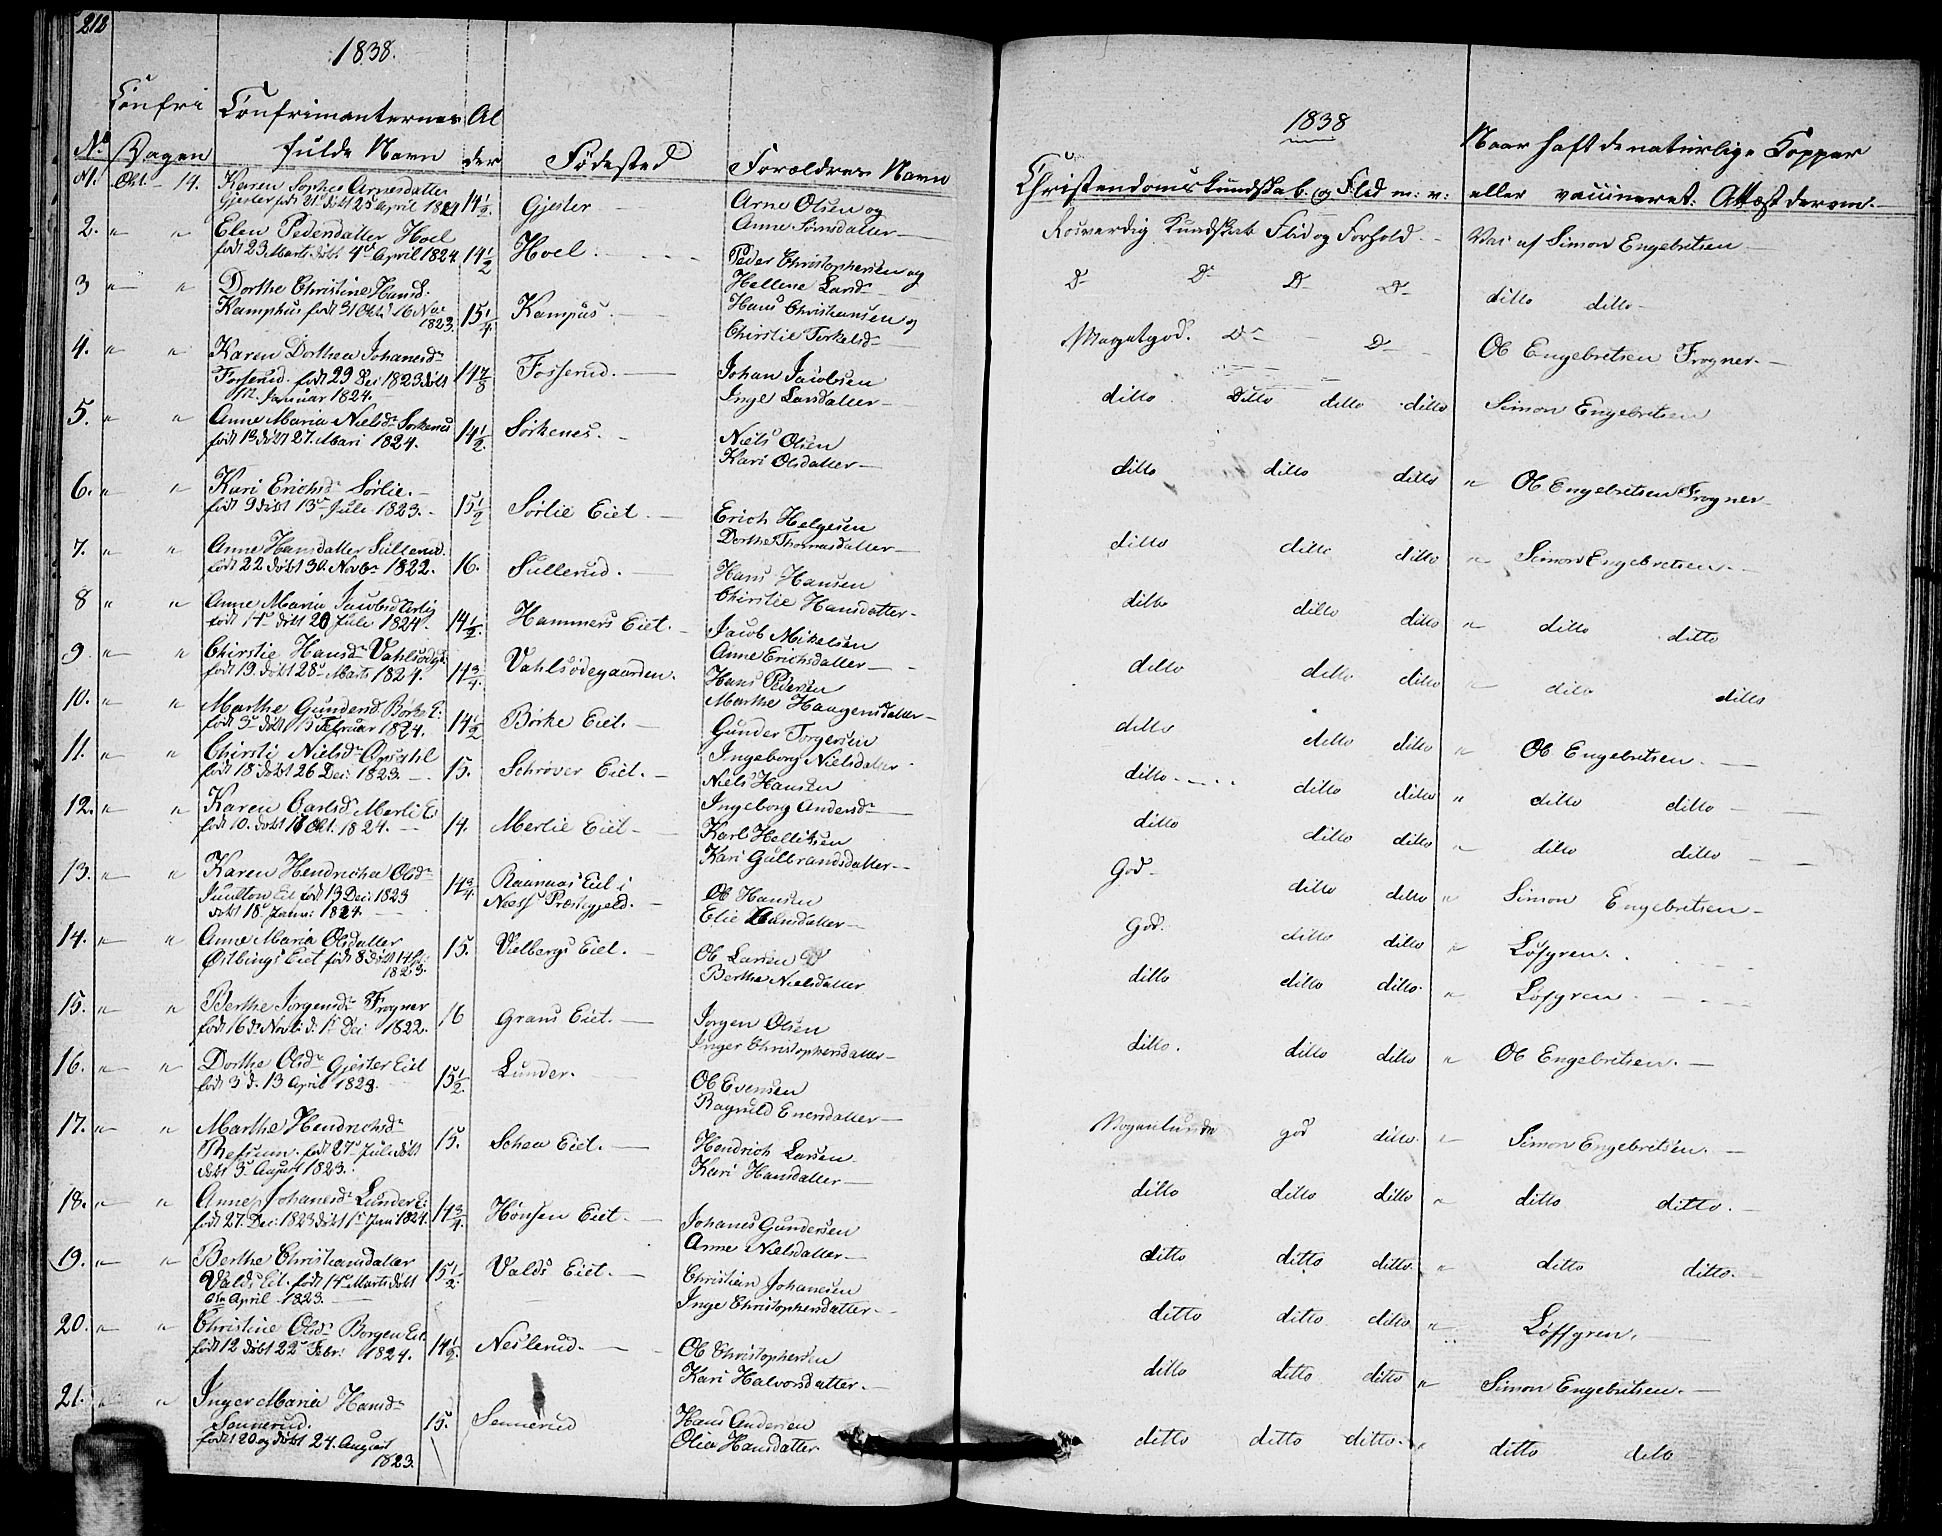 212
1838.
Confri Confrimanternes Al
No Dagen fulde Navn der Fødested Forældres Navn
1. Okt - 14. Karen Sophie Arnesdatter 14 1/2 Gjester Arne Olsen og
Gjester født 21 døbt 25 April 1824 Anne Sørnsdatter
2. " " Elen Pedersdatter Hoel 14 1/2 Hoel. Peder Christophersen og
født 23 Marts døbt 4 April 1824 Hellene Larsd
3 " " Dorthe Christine Hansd. 15 1/4 Kampus. Hans Christiansen og
Kamphus født 31 Okt. d. 16 Nov 1823. Chirstie Torkelsd
4. " " Karen Dorthea Johanesd Fosserud. Johan Jacobsen
Fosserud. født 29 Dec 1823 døbt 14 7/8 Inge Larsdatter
12. Januar 1824.
5. " " Anne Maria Nielsd Sørkenes 14 1/2 Sørkenes. Niels Olsen
født 13 døbt 27. Mari 1824. Kari Olsdatter
6. " " Kari Erichsd Sørlie. 15 1/2 Sørlie Eiet. Erich Helgesen
født 9 døbt 13 Juli 1823. Dorthe Thomasdatter
7. " " Anne Hansdatter Sullerud. 16. Sullerud. Hans Hansen
født 22 døbt 30. Novbr 1822. Chirstie Hansdatter
8 " " Anne Maria Jacobsd 14 1/2. Hammers Eiet. Jacob Mikelsen
født 14 døbt 20 Juli 1824. Anne Erichsdatter
9 " " Chirstie Hansd Vahlsødeg 14 3/4. Vahlsødegaarden. Hans Pedersen
født 19. døbt 28 Marts 1824. Marthe Haagensdatter
10. " " Marthe Gundersd Børke E: 14 1/2 Børke Eiet. Gunder Torgersen
født 3 døbt 15 Februar 1824. Ingeborg Nielsdatter
11. " " Chirsti Nielsd Opsahl 15. Schrøver Eiet. Niels Hansen
født 18 døbt 26 Dec: 1823. Ingeborg Andersd
12. " " Karen Carlsd Merli E: 14. Merlie Eiet Karl Hellitsen
født 10. døbt 17 Okt. 1824. Kari Gulbrandsdatter
13. " " Karen Hendricha Olsd 14 3/4. Raanaas Eiet i Ole Hansen
Eie født 13 Dec: 1823 Næss Præstegjeld. Elie Hansdatter
døbt 18 Januar: 1824.
14. " " Anne Maria Olsdatter 15. Vielbergs Eiet. Ole Larsen
Østbings Eiet født 8 døbt 14 1823. Berthe Nielsdatter
15. " " Berthe Jorgensd Frogner 16 Grans Eiet. Jorgen Olsen
født 16 d. Novb: d. 1 Dec 1822. Inger Christophersdatter
16. " " Dorthe Olsd Gjester Eiet 15 1/2. Lunder. Ole Evensen
født 3 d. 13 April 1823. Ragnild Enersdatter
17. " " Marthe Hendrichsd 15. Schea Eiet. Hendrich Larsen
født 27 Juli døbt Kari Hansdatter
døbt 3 August 1823.
18. " " Anne Johanesd Lunder E: 14 3/4. Hønsen Eiet. Johanes Gundersen
født 27. Dec: 1823 døbt 1 Jan 1824. Anne Nielsdatter
19. " " Berthe Christiansdatter 15 1/2. Valds Eiet. Christian Johanesen
Valds Eit. født 14 Marts døbt Inge Christophersdatter
April 1823.
20. " " Christine Olsd Borgen Eit. 14 1/2. Neslerud. Ole Christophersen
født 12 døbt 22 Febr: 1824. Kari Halvorsdatter.
21. " " Inger Maria Hansd 15. Sennerud Hans Andersen
Sennerud. Olea Hansdatter
født 20 og døbt 24. August
1823.
1838
Naar haft de naturlige Kopper
Christendomskundskab og Flid m: v: eller vaccineret. Attest derom.
Roesverdig Kundskab Flid og Forhold. Vac af Simon Engebretsen
D D D D ditto ditto
Megetgod. D D Ole Engebretsen Frogner.
ditto ditto ditto ditto Simon Engebretsen
ditto ditto ditto " Ole Engebretsen Frogner
ditto ditto ditto " Simon Engebretsen.
ditto ditto ditto " ditto ditto
ditto ditto ditto " ditto ditto
ditto ditto ditto " Ole Engebretsen.
ditto ditto ditto " ditto ditto
ditto ditto ditto " ditto ditto
God ditto ditto " Simon Engebretsen
God. ditto ditto " Løfgren.
ditto ditto ditto. " Løfgren.
ditto. ditto ditto " Ole Engebretsen.
Nogenlunde god ditto. " Simon Engebretsen.
ditto ditto ditto " ditto ditto.
ditto ditto ditto. " ditto ditto.
ditto ditto ditto " Løffgren.
ditto ditto ditto " Simon Engebretsen.
ditto ditto ditto. " ditto ditto